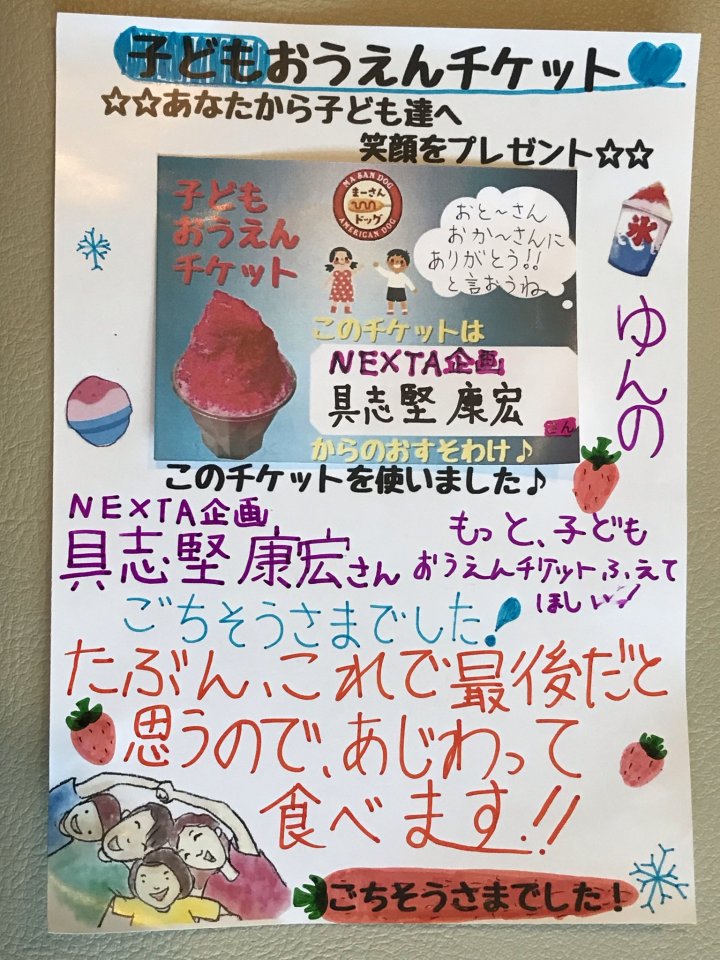 子どもおうえんチケット
☆☆あなたから子ども達へ
笑顔をプレゼント☆☆
子ども
おうえん
チケット
MA SAN DOG
まーさん
ドッグ
AMERICAN DOG
おと〜さん
おか〜さんに
ありがとう!!
と言おうね
このチケットは
NEXTA企画
具志堅 康宏
さん
からのおすそわけ♪
氷
ゆんの
このチケットを使いました♪
NEXTA企画
具志堅 康宏さん
もっと、子ども
おうえんチケットふえて
ほしい!
ごちそうさまでした!
たぶん、これで最後だと
思うので、あじわって
食べます!!
ごちそうさまでした!